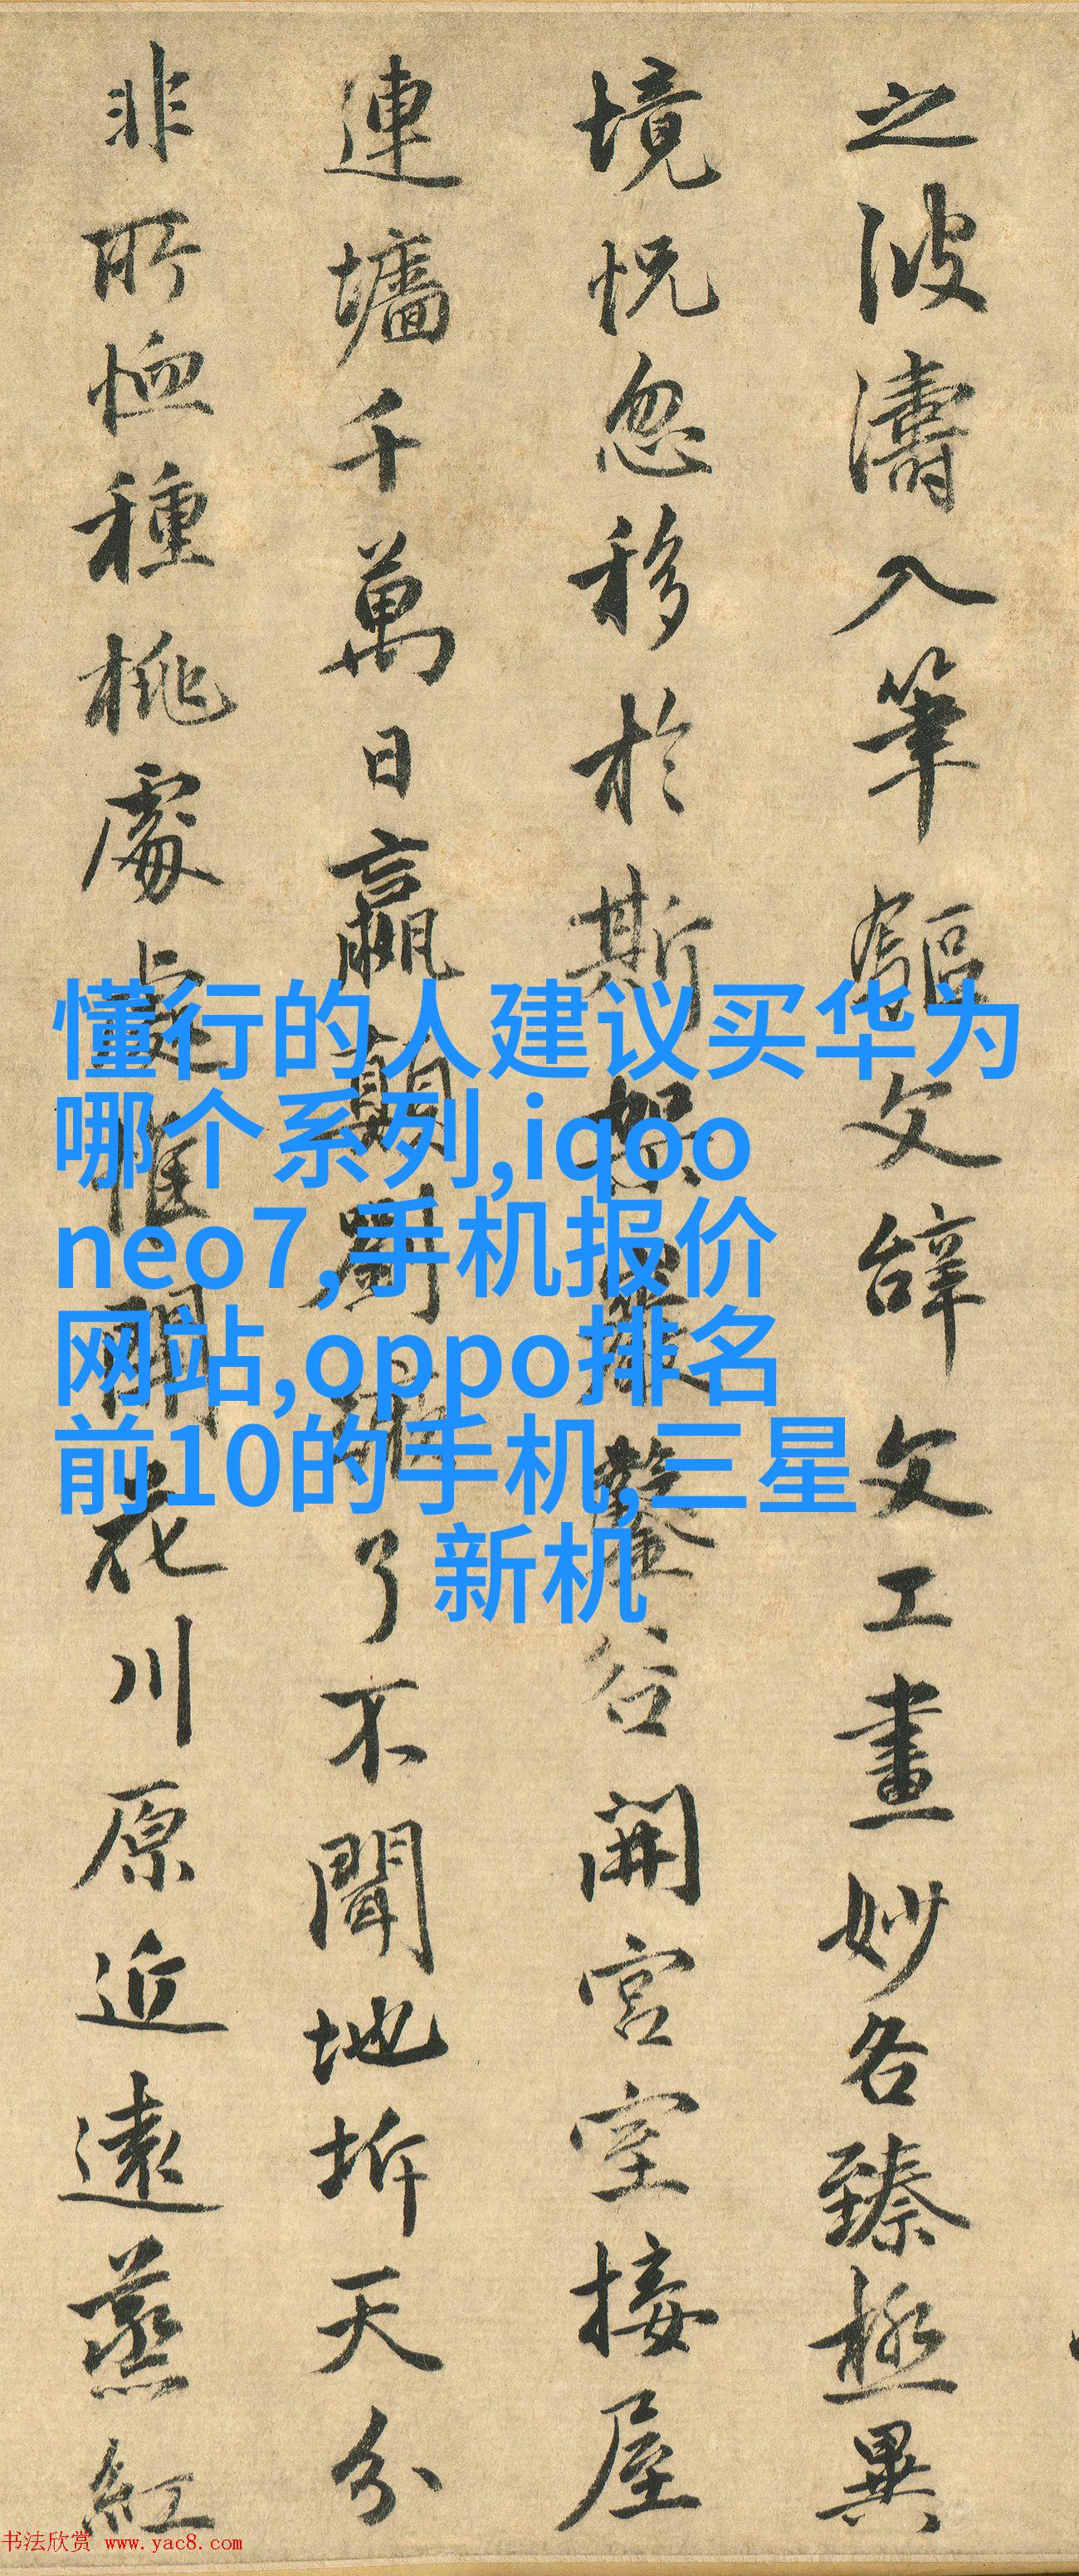 之波濤入筆驅文辭文工畫妙各臻極異
境怳忽移於斯架巖鑿谷開宮室接屋
連墻千萬日嬴顛劉蹶了不聞地坼天分
非所恤種桃處處惟開花川原近遠蒸紅
懂行的人建议买华为
哪个系列,iqoo
neo7,手机报价
网站,oppo排名
前10的手机,三星
新机
书法欣赏 www.yac8.com